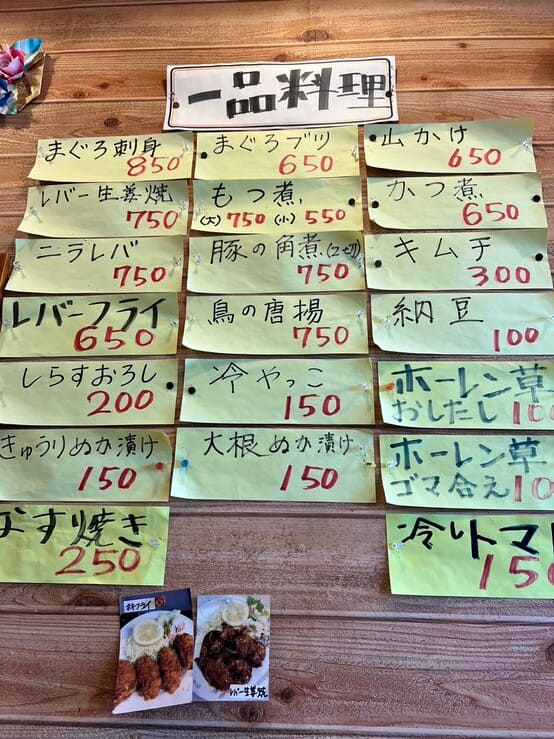 一品料理
まぐろ刺身
850
まぐろブツ
650
山かけ
650
レバー生姜焼
750
もつ煮
(大)750 (小)550
かつ煮
650
ニラレバ
750
豚の角煮(2切)
750
キムチ
300
レバーフライ
650
鳥の唐揚
750
納豆
100
しらすおろし
200
冷やっこ
150
ホーレン草
おしたし 10
きゅうりぬか漬け
150
大根ぬか漬け
150
ホーレン草
ゴマ合え 10
なす焼き
250
冷しトマト
150
カキフライ
レバー生姜焼